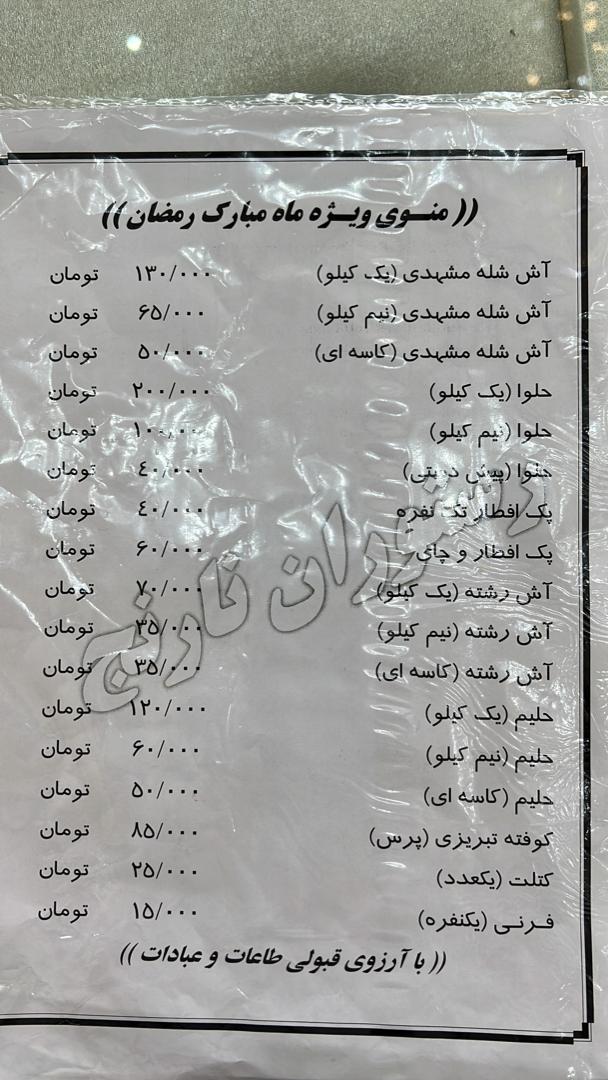 (( منوی ویژه ماه مبارک رمضان ))
آش شله مشهدی (یک کیلو) ۱۳۰/۰۰۰ تومان
آش شله مشهدی (نیم کیلو) ۶۵/۰۰۰ تومان
آش شله مشهدی (کاسه ای) ۵۰/۰۰۰ تومان
حلوا (یک کیلو) ۲۰۰/۰۰۰ تومان
حلوا (نیم کیلو) ۱۰۰/۰۰۰ تومان
حلوا (پیش دستی) ٤۰/۰۰۰ تومان
پک افطار تک نفره ٤۰/۰۰۰ تومان
پک افطار و چای ۶۰/۰۰۰ تومان
آش رشته (یک کیلو) ۷۰/۰۰۰ تومان
آش رشته (نیم کیلو) ۳۵/۰۰۰ تومان
آش رشته (کاسه ای) ۳۵/۰۰۰ تومان
حلیم (یک کیلو) ۱۲۰/۰۰۰ تومان
حلیم (نیم کیلو) ۶۰/۰۰۰ تومان
حلیم (کاسه ای) ۵۰/۰۰۰ تومان
کوفته تبریزی (پرس) ۸۵/۰۰۰ تومان
کتلت (یکعدد) ۲۵/۰۰۰ تومان
فرنی (یکنفره) ۱۵/۰۰۰ تومان
(( با آرزوی قبولی طاعات و عبادات ))
رستوران نارنج